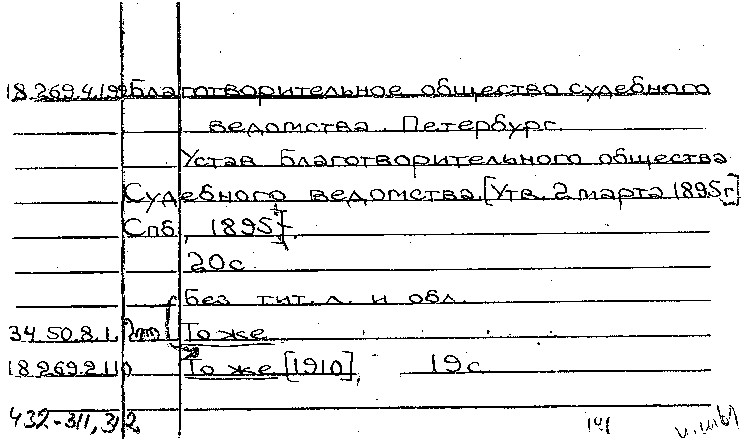 18.269.4.192 Благотворительное общество судебного
ведомства. Петербург.
Устав Благотворительного общества
Судебного ведомства. [Утв. 2 марта 1895г]
Спб, 1895].
20с.
Без тит. л. и обл.
34.50.8.1. То же.
18.269.2.110 То же [1910], 19с.
432-311, 312.
141